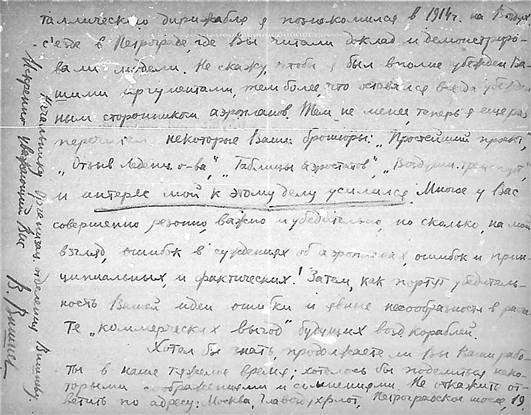 таллического дирижабля я познакомился в 1914 г. на Воздух.
с'езде в Петрограде, где Вы читали доклад и демонстриро-
вали модели. Не скажу, чтобы я был вполне убежден Ва-
шими аргументами, тем более, что оставался всегда убежден-
ным сторонником аэропланов. Тем не менее теперь я еще раз
перечитал некоторые Ваши брошюры: „Простейший проект,
„Отзыв Леденц. о-ва", „Таблицы аэростатов", „Воздушн. транспорт",
и интерес мой к этому делу усилился. Многое у Вас
совершенно резонно, важно и убедительно, но сколько, на мой
взгляд, ошибок в суждениях об аэропланах, ошибок и прин-
ципиальных и фактических! Затем, как портят убедитель-
ность Вашей идеи ошибки и явные несообразности в расче-
те „коммерческих выгод" будущих возд. кораблей.
Хотел бы знать, продолжаете ли Вы Ваши рабо-
ты в наше тяжелое время; хотелось бы поделиться неко-
торыми соображениями и сомнениями. Не откажите от-
ветить по адресу: Москва, Главвоздухфлот, Петроградское шоссе,
Искренно уважающий Вас
Начальнику отделения